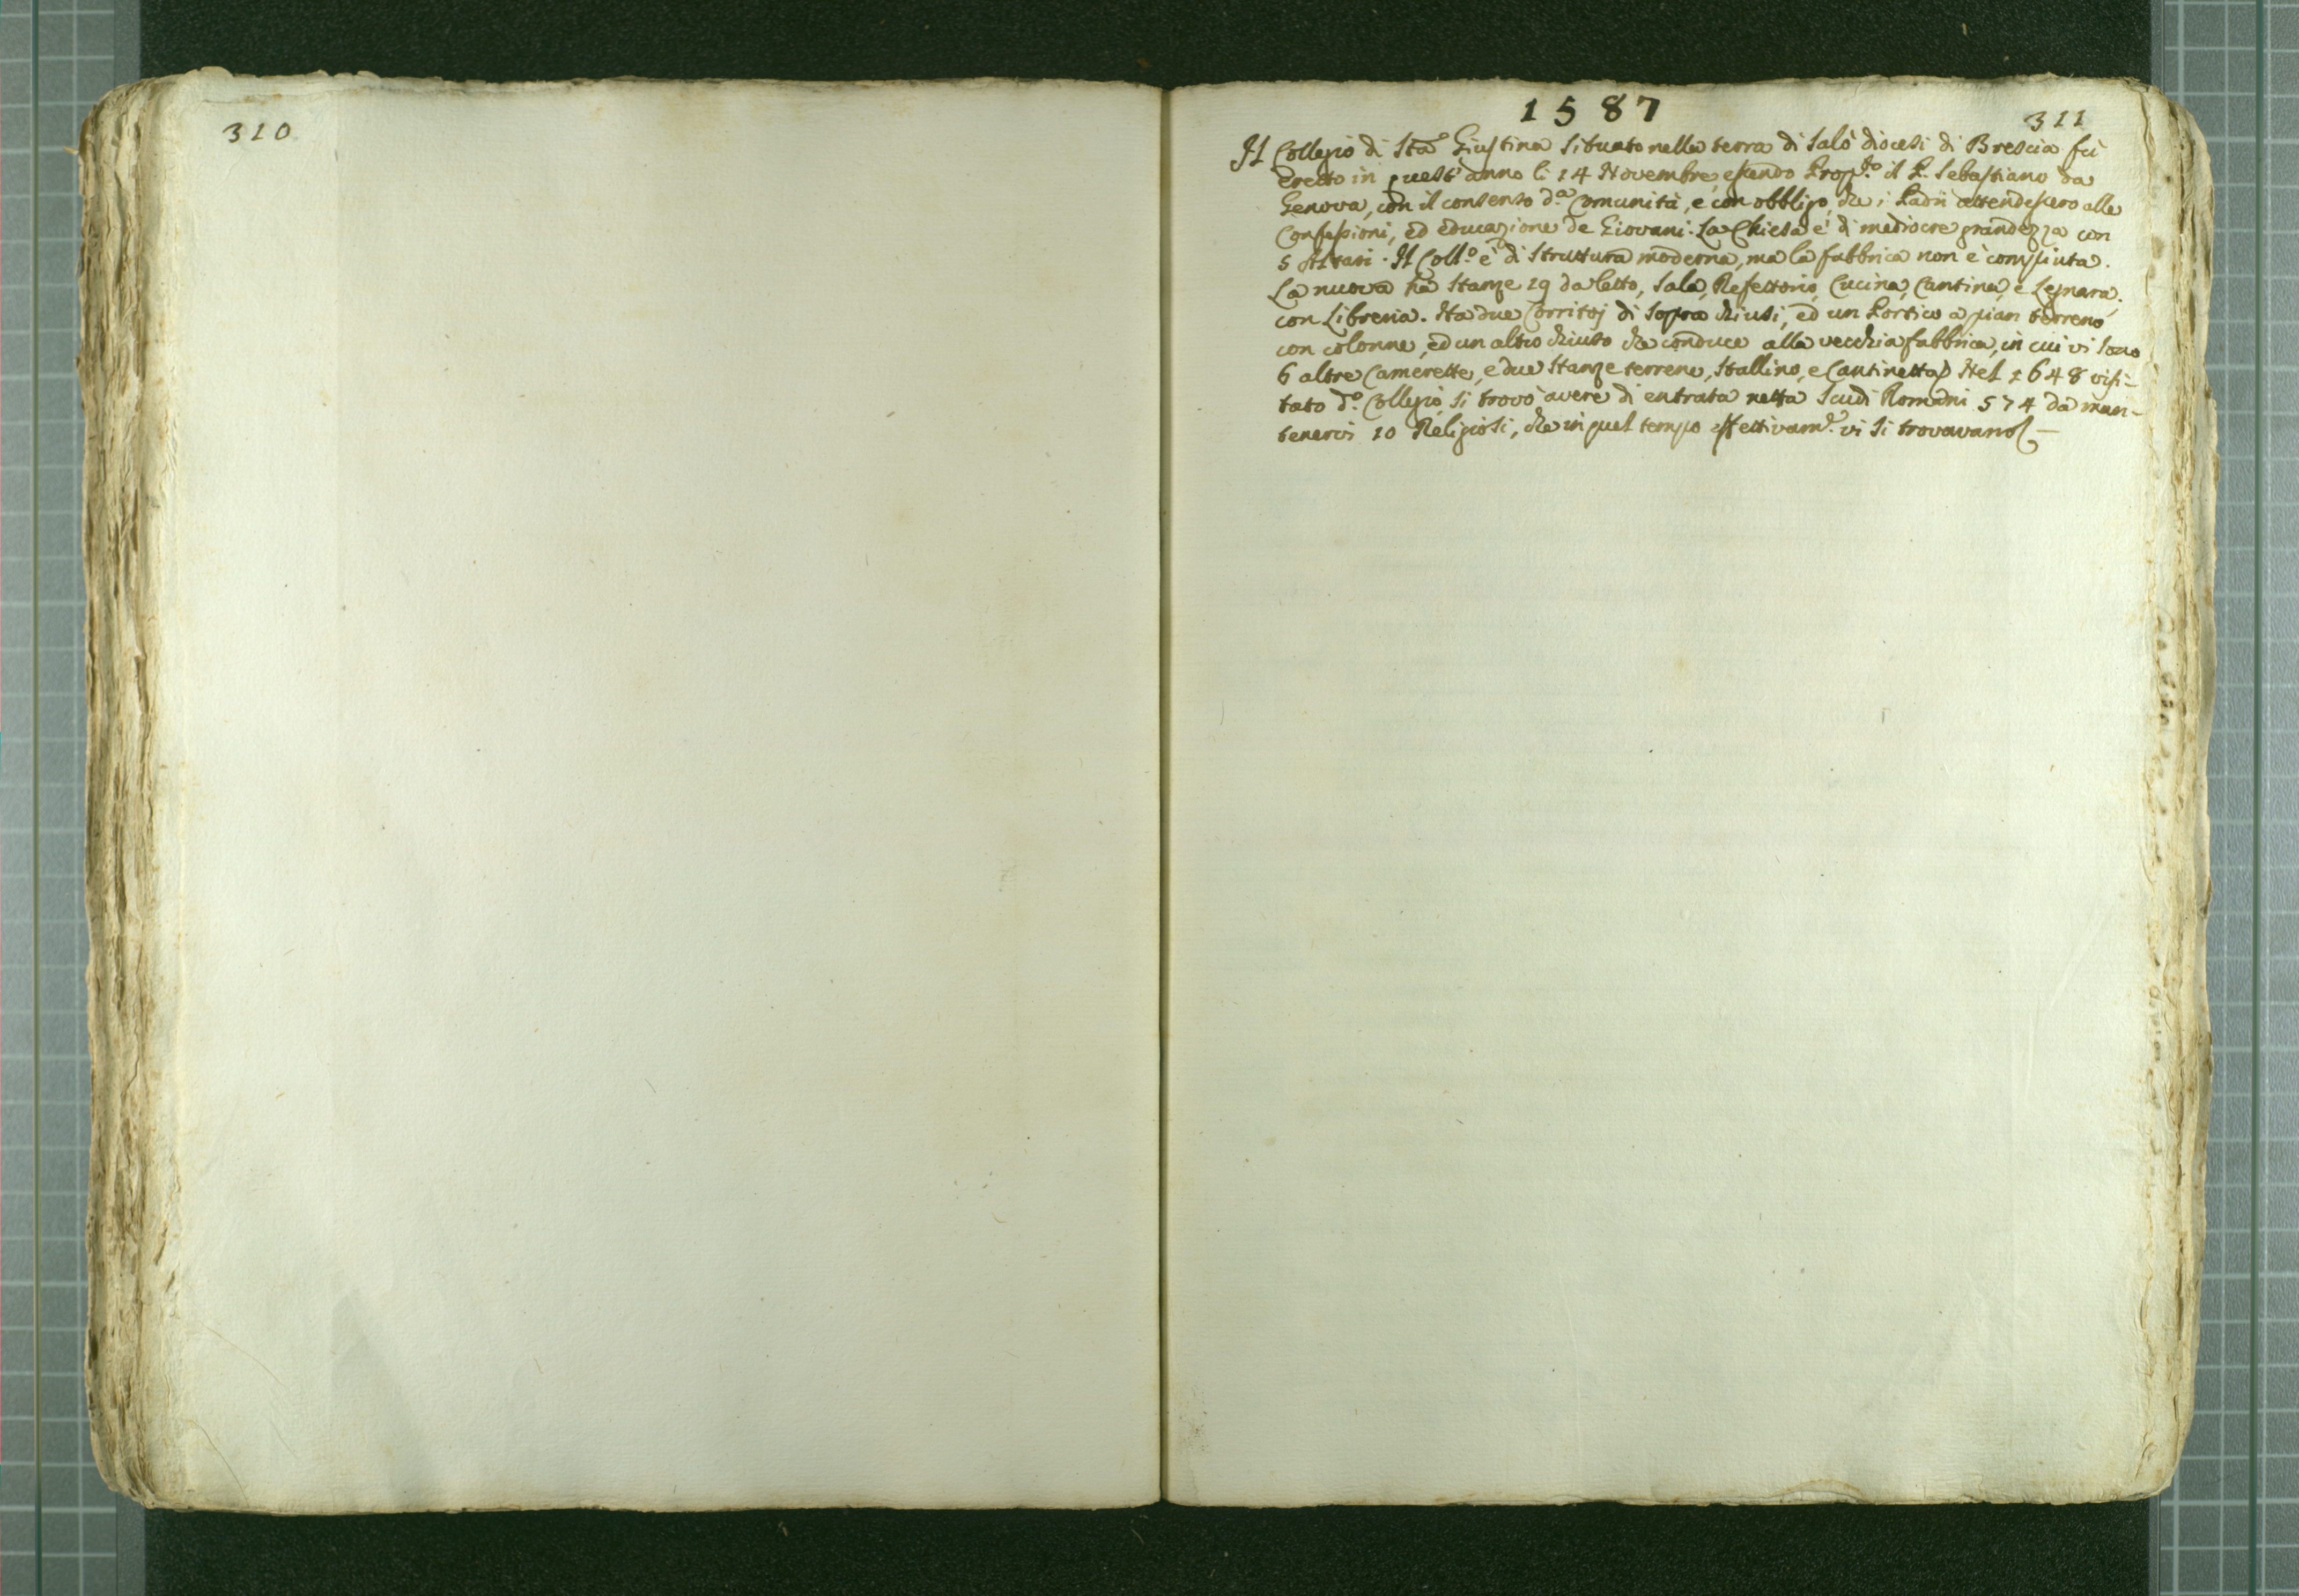 310
1587
311
Il Collegio di Sta Giustina situato nella terra di Salò diocesi di Brescia fù
eretto in quest'anno li 14 Novembre, essendo Prop.to il P. Sebastiano da
Genova, con il consenso d.a Comunità, e con obbligo, che i Padri attendessero alle
Confessioni, ed educazione de Giovani. La Chiesa è di mediocre grandezza con
5 Altari. Il Coll.o è di struttura moderna, ma la fabbrica non è compiuta.
La nuova hà stanze 19 da letto, Sala, Refettorio, Cucina, Cantina, e Legnara,
con Libreria. Ha due Corritoj di sopra chiusi, ed un Portico a pian terreno
con colonne, ed un altro chiuso che conduce alla vecchia fabbrica, in cui vi sono
6 altre Camerette, e due stanze terrene, stallino, e Cantinetta. Nel 1648 visi-
tato d.o Collegio si trovò avere di entrata netta scudi Romani 574 da man-
tenervi 10 Religiosi, che in quel tempo effettivam.e vi si trovavano —